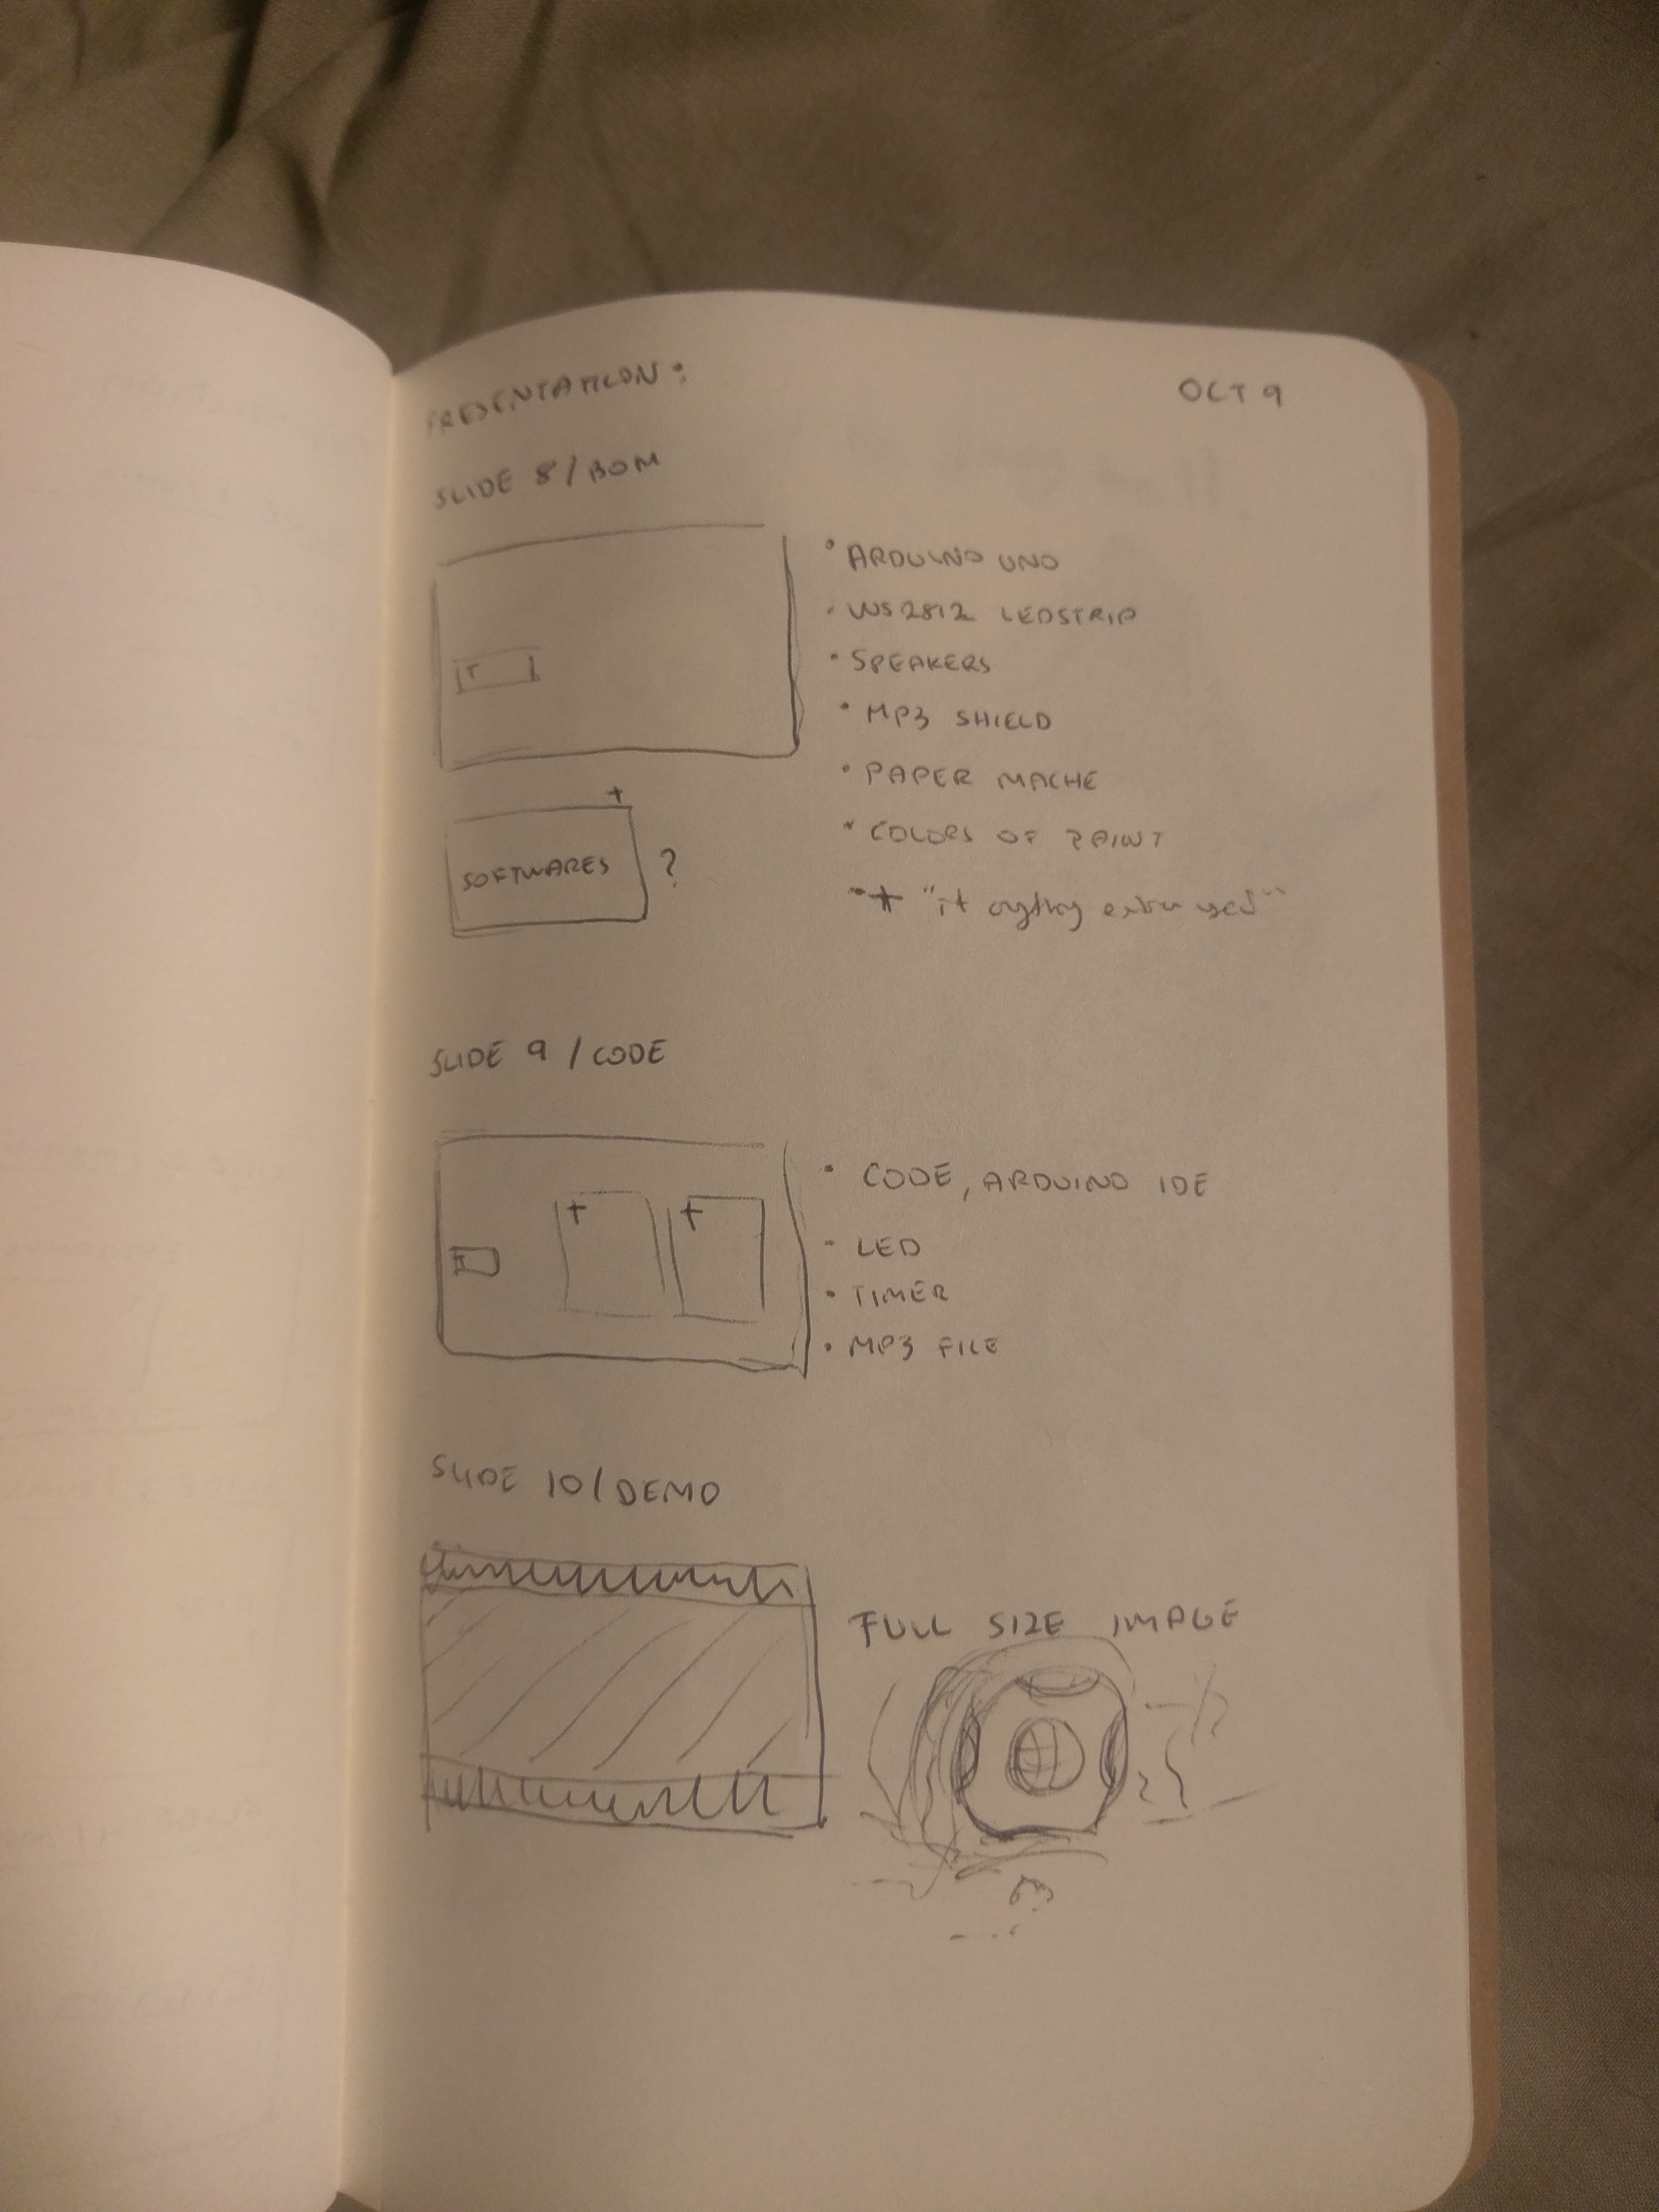 PRESENTATION:
OCT 9
SLIDE 8/BOM
T
• ARDUINO UNO
• WS2812 LEDSTRIP
• SPEAKERS
• MP3 SHIELD
• PAPER MACHE
• COLORS OF PAINT
+ "if anything extra used"
+
SOFTWARES ?
SLIDE 9 / CODE
T
T
T
• CODE, ARDUINO IDE
• LED
• TIMER
• MP3 FILE
SLIDE 10/DEMO
FULL SIZE IMAGE